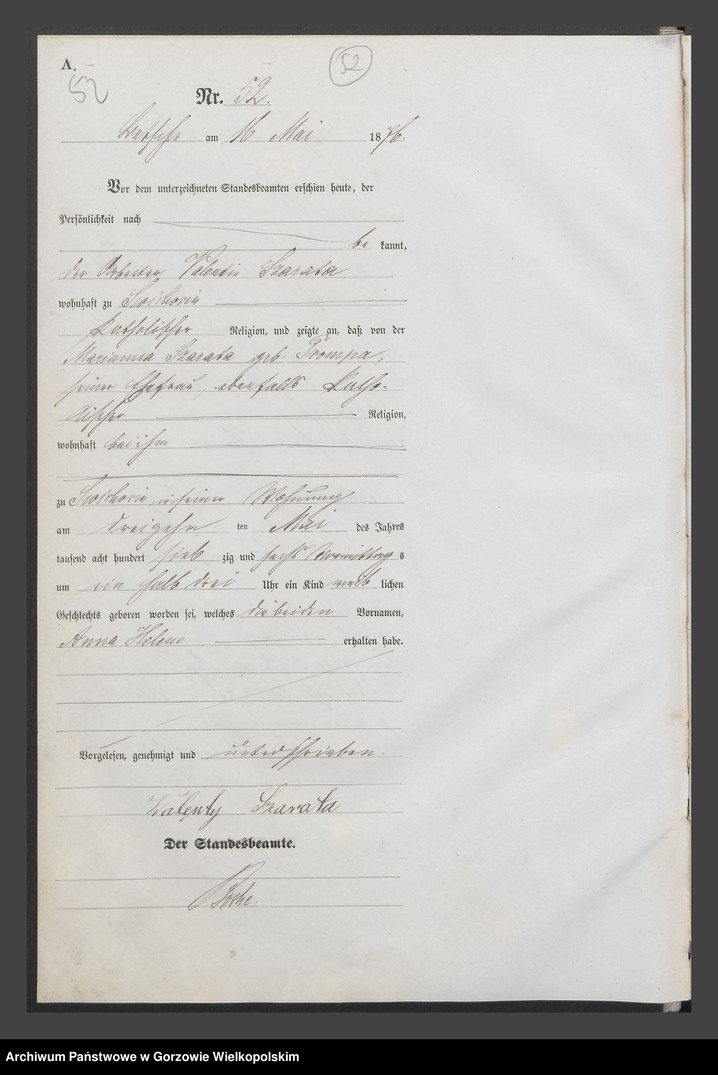 A.
52
52
Nr. 52.
Betsche am 16. Mai 1876.
Vor dem unterzeichneten Standesbeamten erschien heute, der
Persönlichkeit nach
be kannt,
der Arbeiter Valentin Szarata
wohnhaft zu
katholischer Religion, und zeigte an, daß von der
Marianna Szarata geb. Prompa,
seiner Ehefrau, ebenfalls katho-
lischer Religion,
wohnhaft bei ihm
zu in seiner Wohnung
am dreizehn ten Mai des Jahres
tausend acht hundert sieb zig und sechs Vormittag s
um ein halb drei Uhr ein Kind weib lichen
Geschlechts geboren worden sei, welches die beiden Vornamen,
Anna Helene erhalten habe.
Vorgelesen, genehmigt und unterschrieben.
Walenty Szarata
Der Standesbeamte.
Archiwum Państwowe w Gorzowie Wielkopolskim